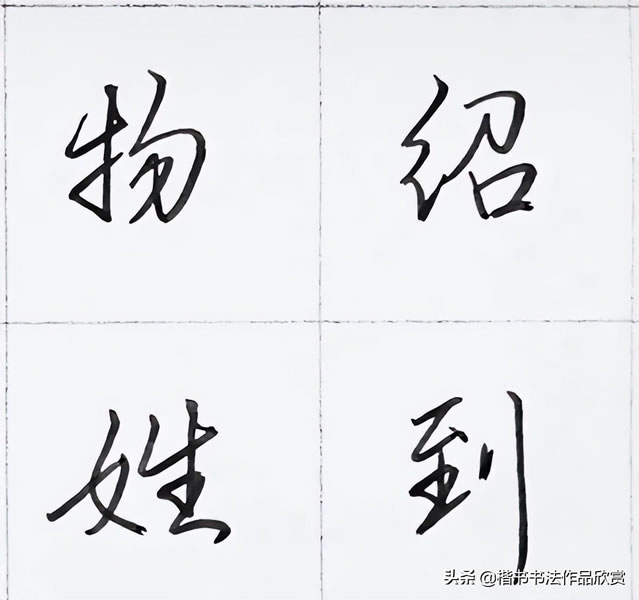 物 绍
姓 到
头条 @楷书书法作品欣赏